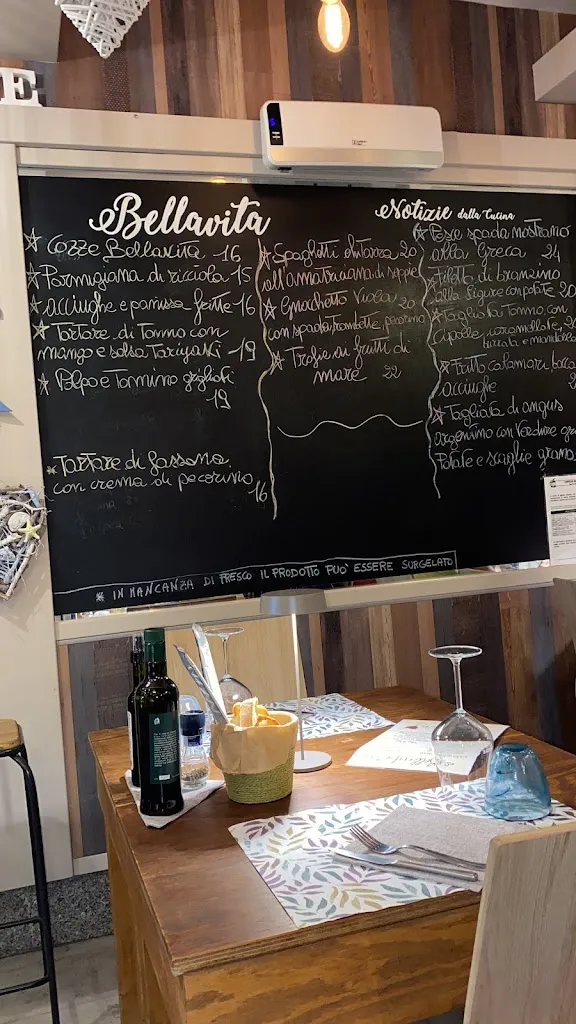 E
Bellavita
☆ Cozze Bellavita 16
☆ Parmigiana di ricciola 15
☆ acciughe e panissa fritte 16
☆ Tartare di Tonno con
mango e salsa Tariyaki 19
☆ Polpo e Tomino grigliati
19
☆ Tartare di fassona
con crema di pecorino 16
Notizie dalla Cucina
☆ Spaghetti chitarra 20
all'amatraciana di seppie
☆ Gnocchetto Viola 20
con spada trombette, pecorino
☆ Trofie ai frutti di
mare 22
☆ Pesce spada nostrano
alla Greca 24
☆ Filetto di branzino
alla ligure con patate 20
☆ Tagliata Tonno con
cipolle caramellate,
e mandorle
☆ Fritto calamari
acciughe
☆ Tagliata di angus
argentino con Verdure
Patate e scaglie grana
* IN MANCANZA DI FRESCO IL PRODOTTO PUO' ESSERE SURGELATO